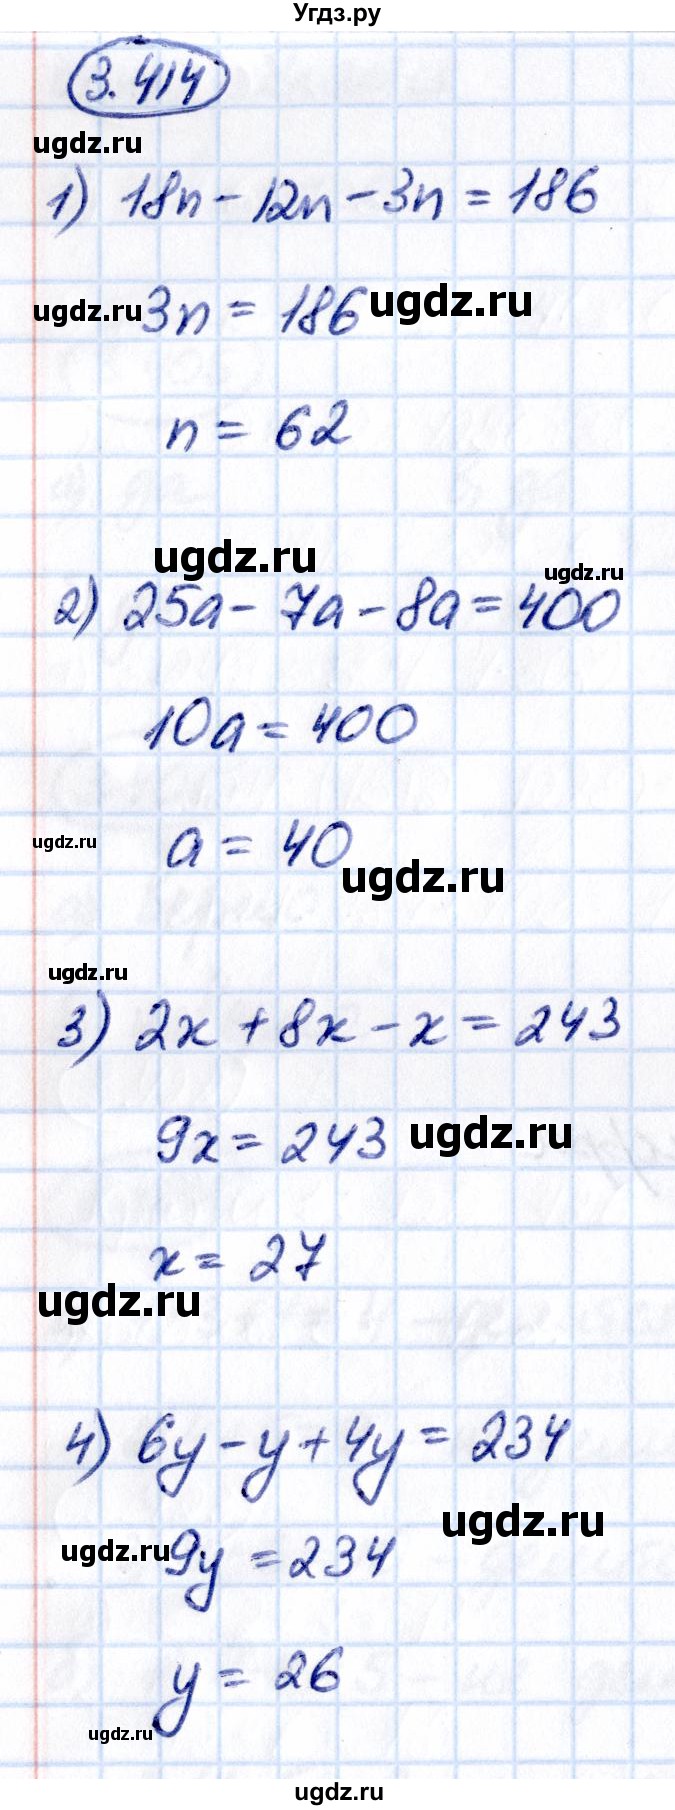 Угдз.ру
3.414
ugdz.ru
1) 18n - 12n - 3n = 186
ugdz.ru
3n = 186
ugdz.ru
n = 62
ugdz.ru
ugdz.ru
2) 25a - 7a - 8a = 400
10a = 400
ugdz.ru
a = 40
ugdz.ru
ugdz.ru
3) 2x + 8x - x = 243
9x = 243
ugdz.ru
x = 27
ugdz.ru
4) 6y - y + 4y = 234
ugdz.ru
ugdz.ru
9y = 234
y = 26
ugdz.ru
ugdz.ru